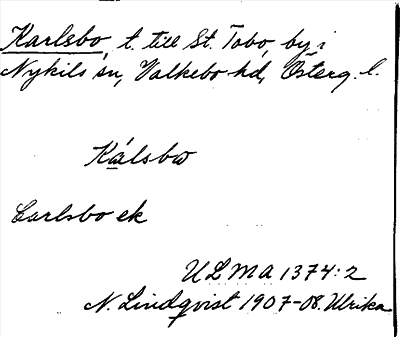 Karlsbo, t. till St. Tobo, by i
Nykils sn, Valkebo hd, Österg. l.
Kálsbω
Carlsbo ek
ULMA 1374:2
N. Lindqvist 1907-08. Ulrika